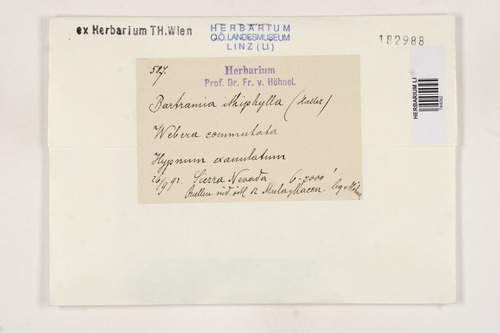 ex Herbarium TH.Wien
HERBARIUM
O.Ö. LANDESMUSEUM
LINZ (LI)
182988
HERBARIUM LI
527.
Herbarium
Prof. Dr. Fr. v. Höhnel.
Bartramia ithiphylla (Haller)
Webera commutata
Hypnum exanulatum
26/9 92. Sierra Nevada 6-7000'
Quellen südöstl. v. Mulaghacen. leg. v. Höhnel